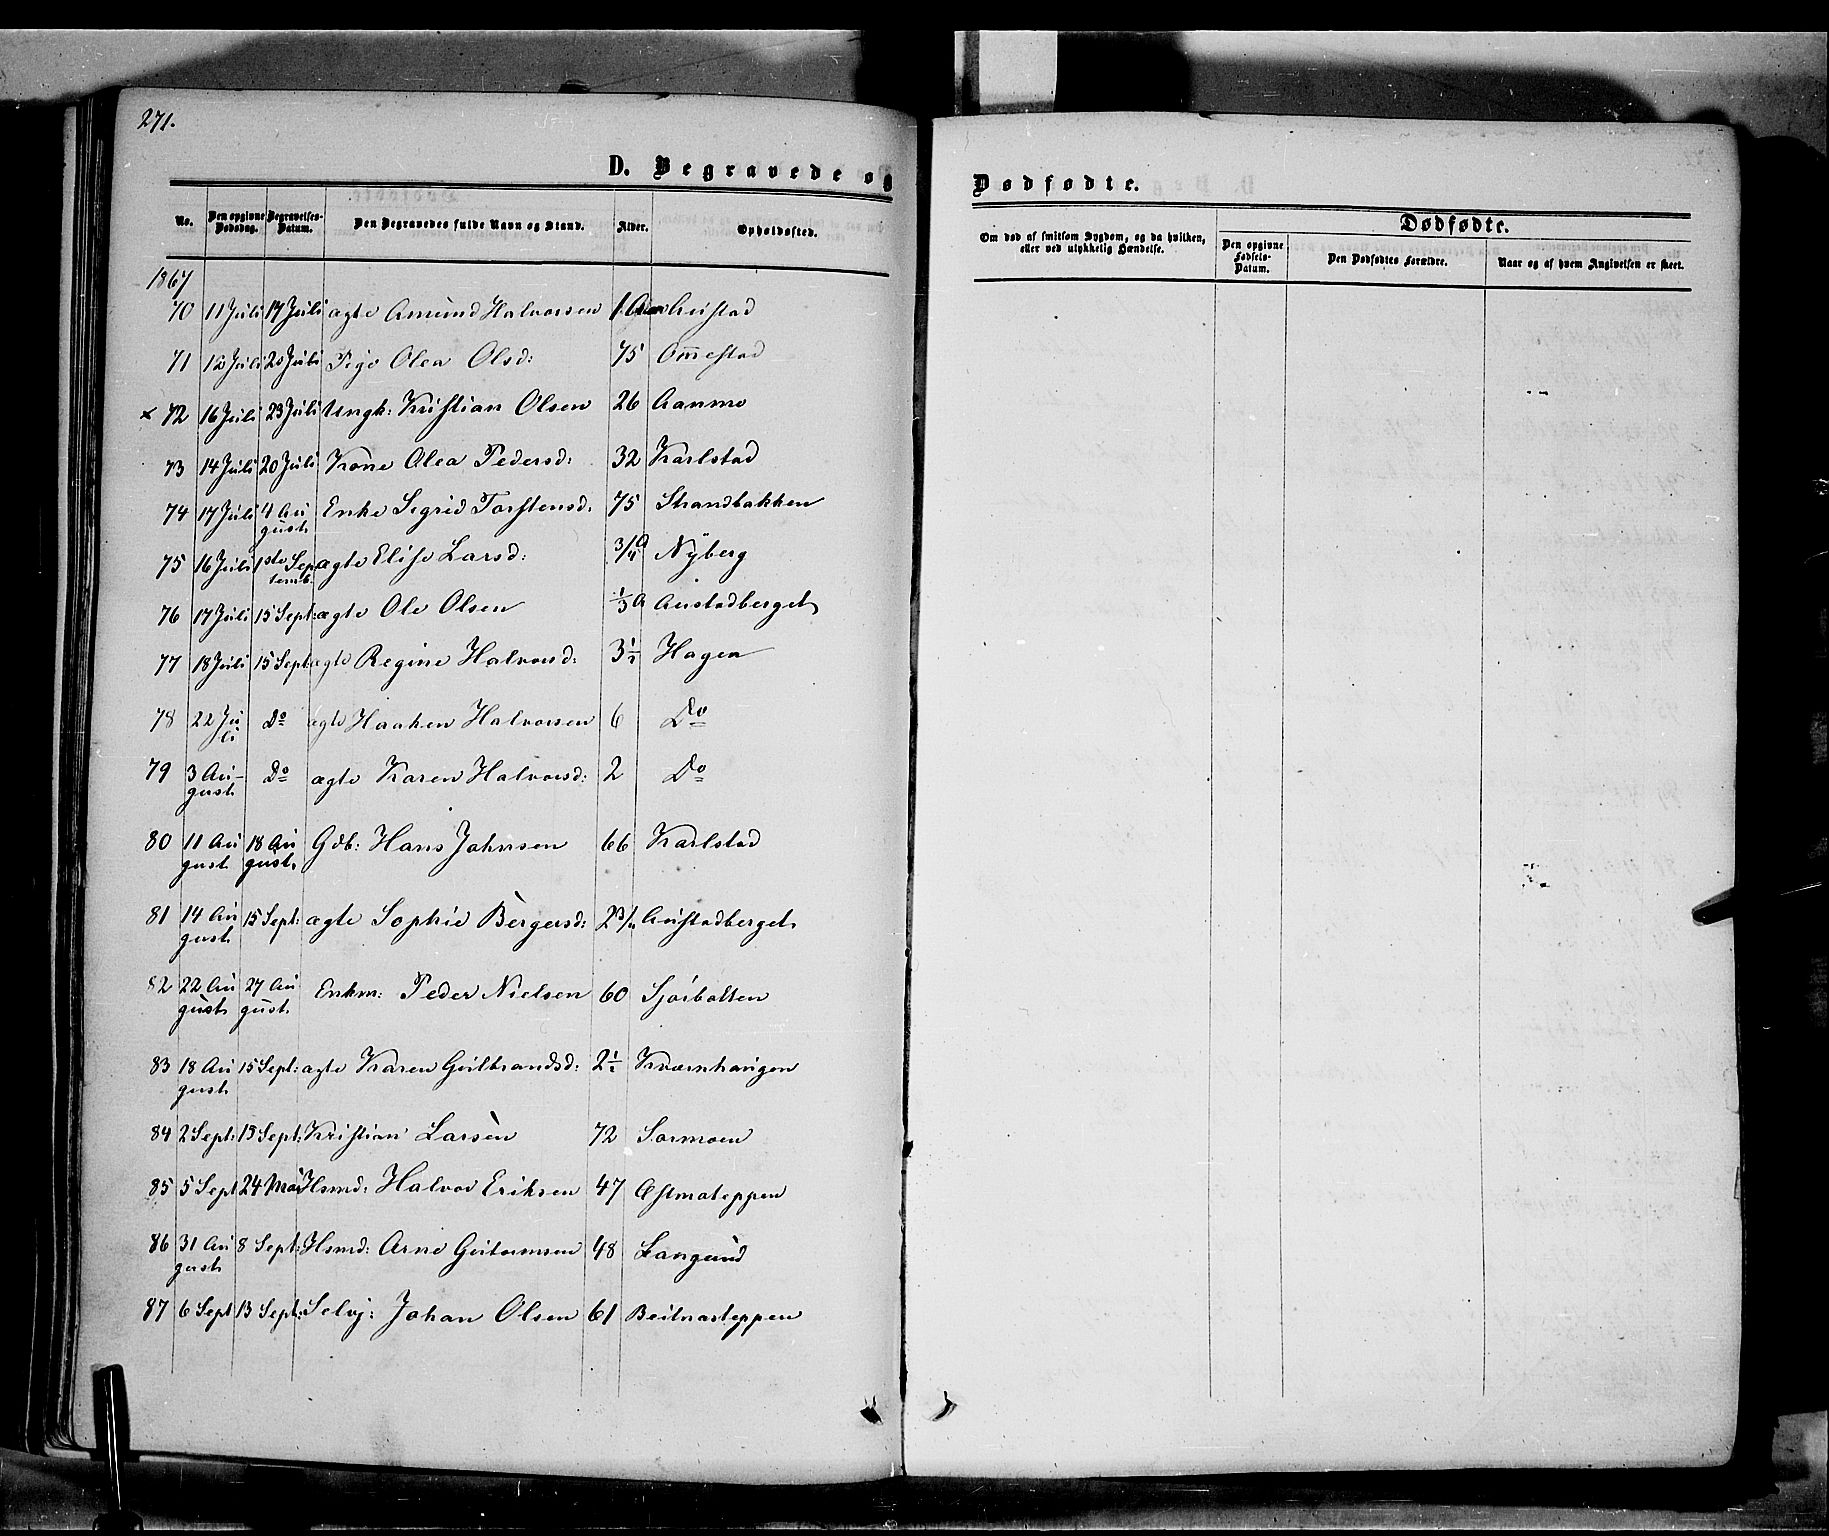 271.
D. Begravede og
Dødfødte.
No. Den opgivne Dødsdag. Begravelses-Datum. Den Begravedes fulde Navn og Stand. Alder. Opholdssted.
Om død af smitsom Sygdom, og da hvilken, eller ved ulykkelig Hændelse.
Dødfødte.
Den opgivne Fødsels-Datum. Den Dødfødtes Forældre. Naar og af hvem Angivelsen er skeet.
1867
70 11 Juli 14 Juli ægte Amund Halvorsen 1 Aar Austad
71 12 Juli 20 Juli Pige Olea Olsd: 75 Om̅estad
× 72 16 Juli 23 Juli Ungk: Kristian Olsen 26 Aanmo
73 14 Juli 20 Juli Kone Olea Pedersd: 32 Karlstad
74 17 Juli 4 August Enke Sigrid Torstensd: 75 Strandbakken
75 16 Juli 1ste Septemb. ægte Elise Larsd: 3/4 A Nyberg
76 17 Juli 15 Sept: ægte Ole Olsen 1/3 A Austadberget
77 18 Juli 15 Sept ægte Regine Halvorsd: 3 1/2 Hagen
78 22 Juli Do ægte Haaken Halvorsen 6 Do
79 3 August Do ægte Karen Halvorsd: 2 Do
80 11 August 18 August Gdb: Hans Johnsen 66 Karlstad
81 14 August 15 Sept: ægte Sophie Bergersd: 2 3/4 Austadberget
82 22 August 27 August Enkm: Peder Nielsen 60 Sjøibolten
83 18 August 15 Sept: ægte Karen Gulbrandsd: 2 1/2 Kværnhaugen
84 2 Sept: 15 Sept: Kristian Larsen 72 Sormoen
85 5 Sept 24 Mai Hsmd: Halvor Eriksen 47 Østmoteppen
86 31 August 8 Sept: Hsmd: Arne Gutormsen 48 Langund
87 6 Sept 13 Sept: Selvj: Johan Olsen 61 Beitnasteppen